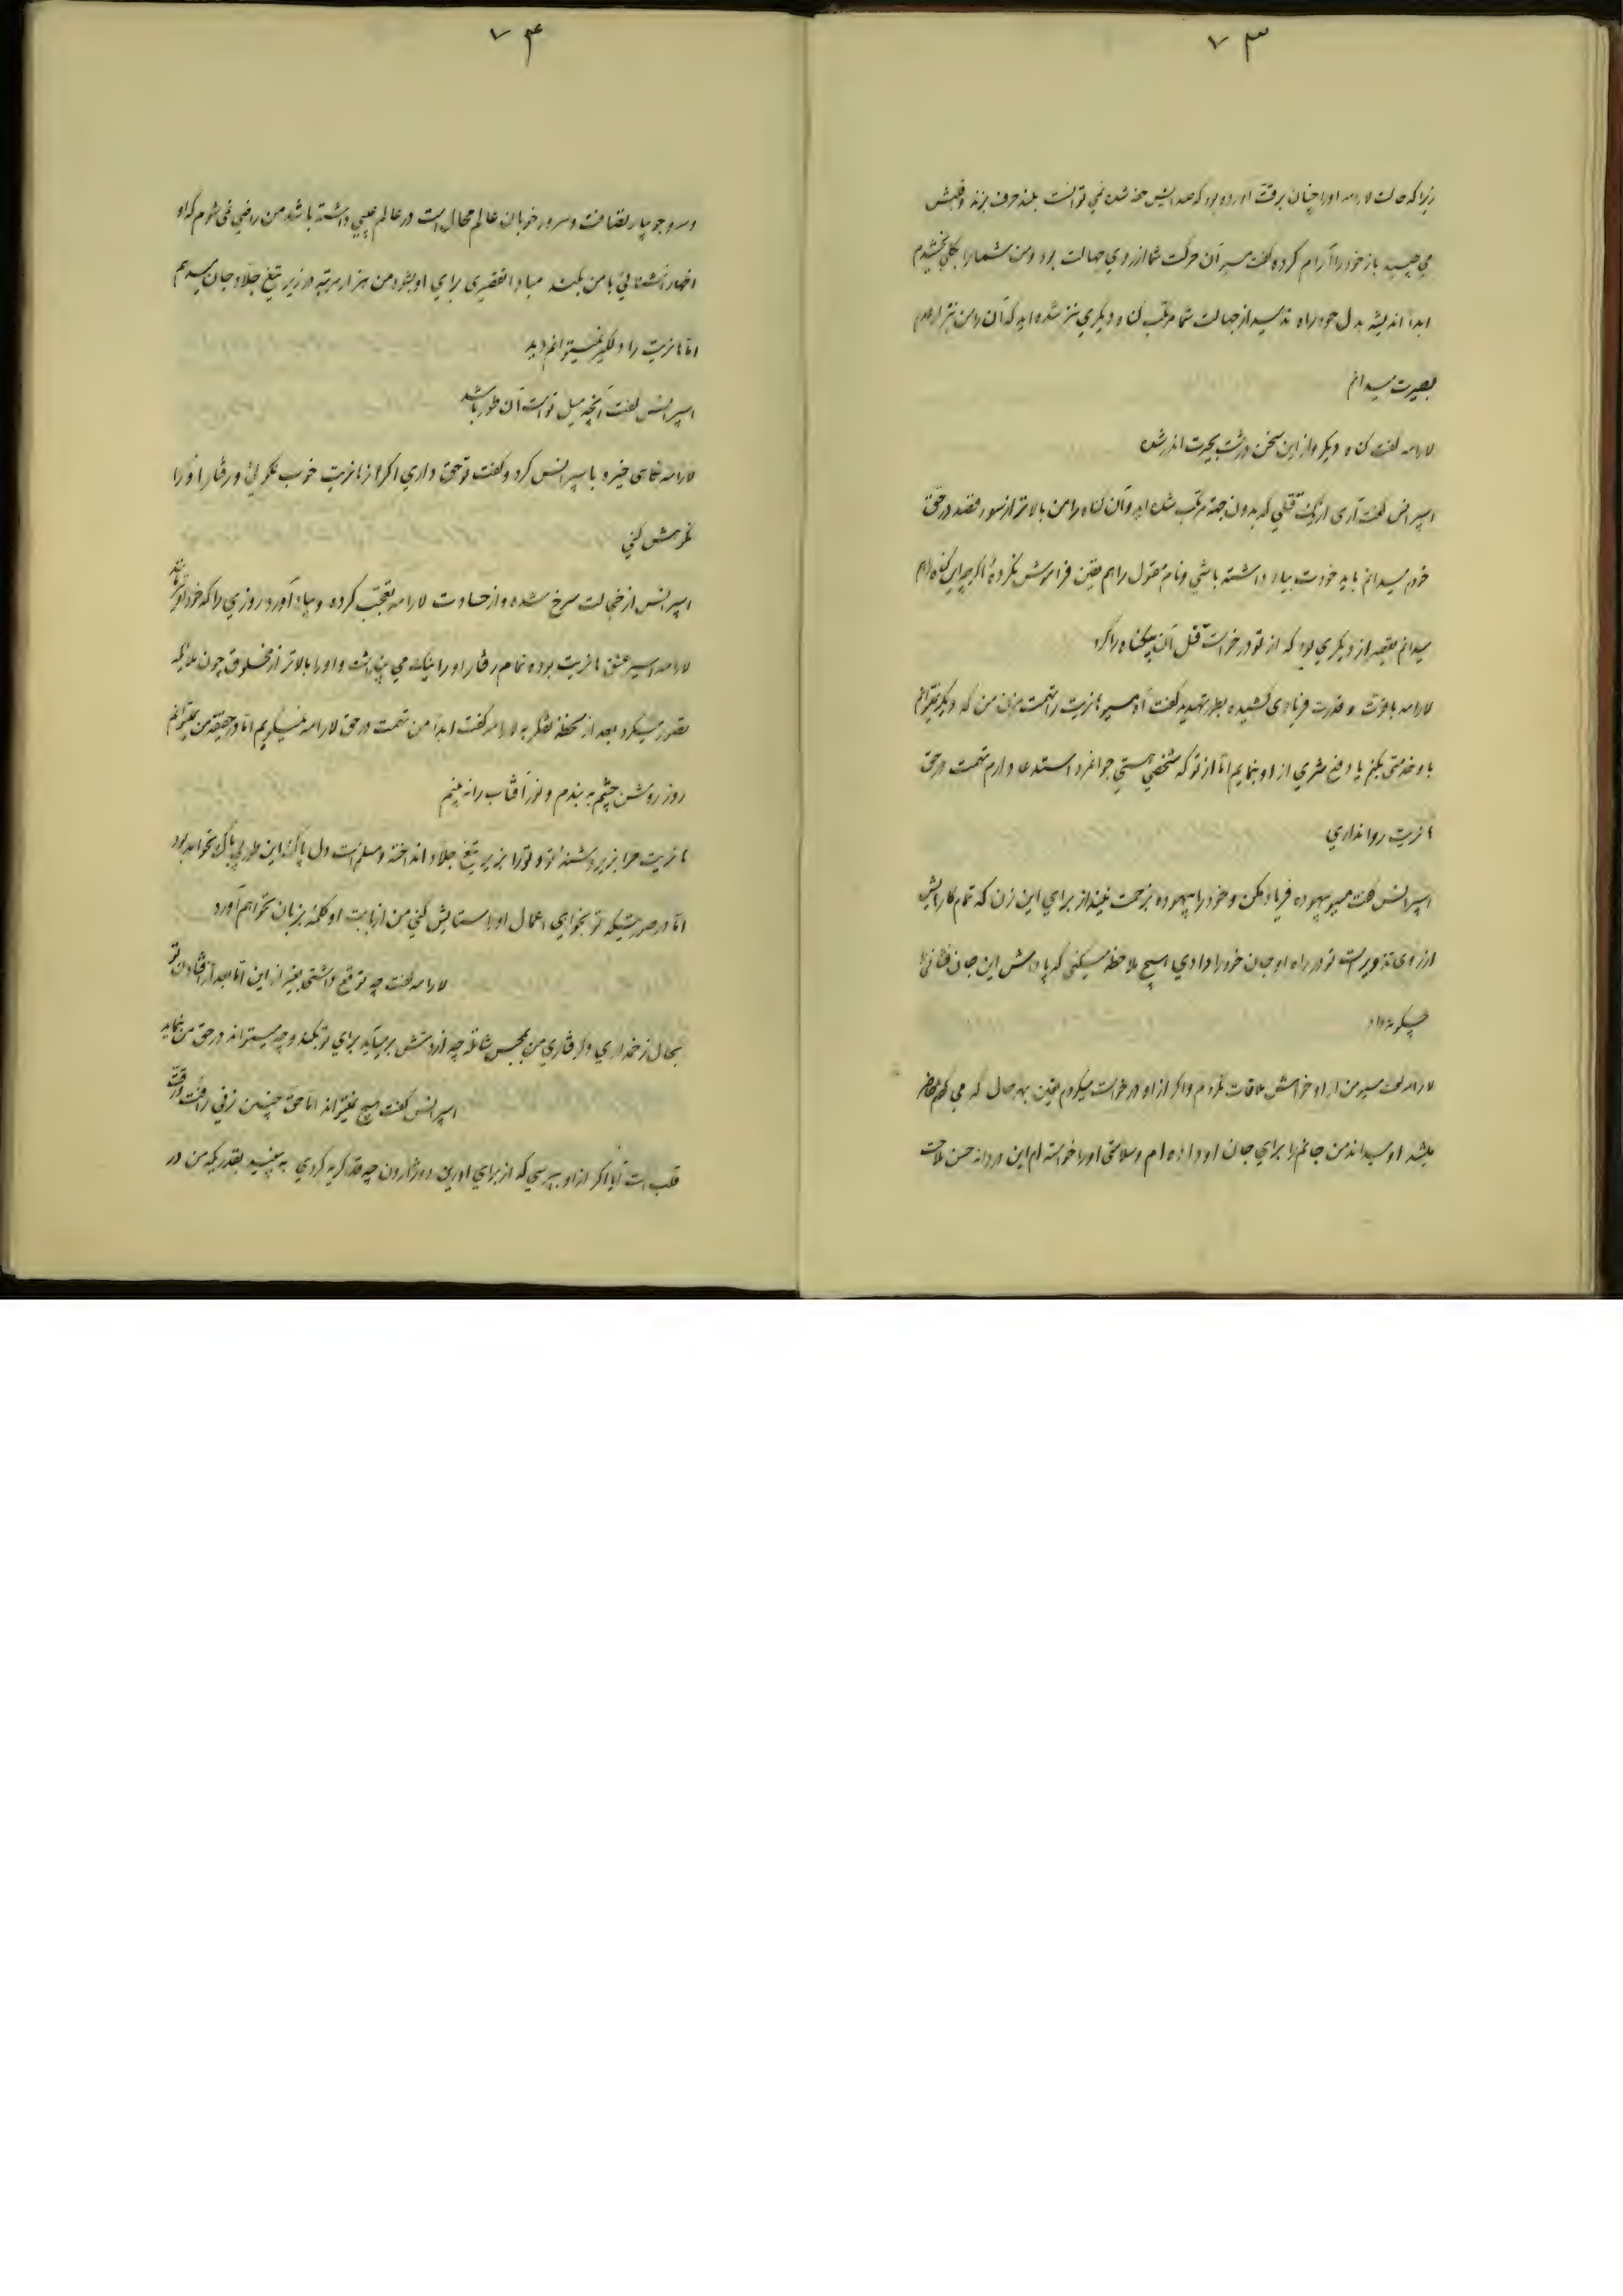 ۷۳
زیرا که حالت لارامه او را چنان برقت آورده بود که صدایش خفه شده نمی توانست بلند حرف بزند و قلبش
می طپید باز خود را آرام کرده گفت مسیو آن حرکت شما از روی جهالت بود و من شما را بکلی بخشیدم
ابدا اندیشه بدل خود راه ندهید از جهالت شما مرتکب گناه دیگری نیز شده اید که آن را من نیز از عدم
بصیرت میدانم
لارامه گفت گناه دیگر و از این سخن درشت بحیرت اندر شده
اسپرانس گفت آری از یک قتلی که بدون جهة مرتکب شده اید و آن گناه را من بالاتر از سوء قصد در حق
خودم میدانم باید خودت بیاد داشته باشی و نام مقتول را هم یقین فراموش نکرده اگرچه این گناه را هم
میدانم تقصیر از دیگری بود که از تو درخواست قتل آن بیگناه را کرد
لارامه با قوت و قدرت فریادی کشیده بطور تهدید گفت آه مسیو هانریت را تهمت مزن من که دیگر نمیتوانم
باو خدمتی بکنم یا دفع شری از او بنمایم اما از تو که شخصی هستی جوانمرد استدعا دارم تهمت در حق
هانریت روا نداری
اسپرانس گفت مسیو بیهوده فریاد مکن و خود را بیهوده بزحمت نینداز برای این زن که تمام کارهایش
از روی تزویر است تو در راه او جان خود را دادی هیچ ملاحظه میکنی که پاداش این جان فشانی را
چگونه داد
لارامه گفت مسیو من از او خواهش ملاقات نکردم و اگر از او درخواست میکردم یقین بهر حال که می گفتم حاضر
میشد او میداند من جانم را برای جان او داده ام و سلامتی او را خواسته ام این دردانه حسن ملاحت
۷۴
و سرو جویبار لطافت و سرور خوبان عالم محال است در عالم عیبی داشته باشد من راضی نمی شوم که او
اظهار آشنائی با من بکند مبادا تقصیری برای او بشود من هزار مرتبه در زیر تیغ جلاد جان میدهم
اما هانریت را دلگیر نمیتوانم دید
اسپرانس گفت آنچه میل تو است آن طور باشد
لارامه نگاهی خیره باسپرانس کرد و گفت تو حق داری اگر از هانریت خوب نگوئی و رفتار او را
نکوهش کنی
اسپرانس از خجالت سرخ شده و از حسادت لارامه تعجب کرده و بیاد آورد روزی را که خود او مانند
لارامه اسیر عشق هانریت بوده تمام رفتار او را نیک می پنداشت و او را بالاتر از مخلوق چون ملائکه
تصور میکرد بعد از لحظه تفکر به لارامه گفت ابدا من تهمت در حق لارامه نمیگویم اما در حقیقة من نمیتوانم
روز روشن چشم به بندم و نور آفتاب را نه بینم
هانریت مرا بزیر دشنه تو و تو را بزیر تیغ جلاد انداخته و مسلم است دل پاک این طور بی باک نخواهد بود
اما در صورتیکه تو بخواهی اعمال او را ستایش کنی من از بابت او کلمه بزبان نخواهم آورد
لارامه گفت چه توقع داشتی بغیر از این اما بعد از افتادن تو
بحال زخمداری و گرفتاری من بحبس شاتله چه از دستش برمیآید برای تو بکند و چه میتواند در حق من بنماید
اسپرانس گفت هیچ نمیتواند اما حق چنین زنی رأفت و رقت
قلب است آیا اگر از او بپرسی که از برای اوربن دوژاردن چه قدر گریه کردی به بینید بقدریکه من در